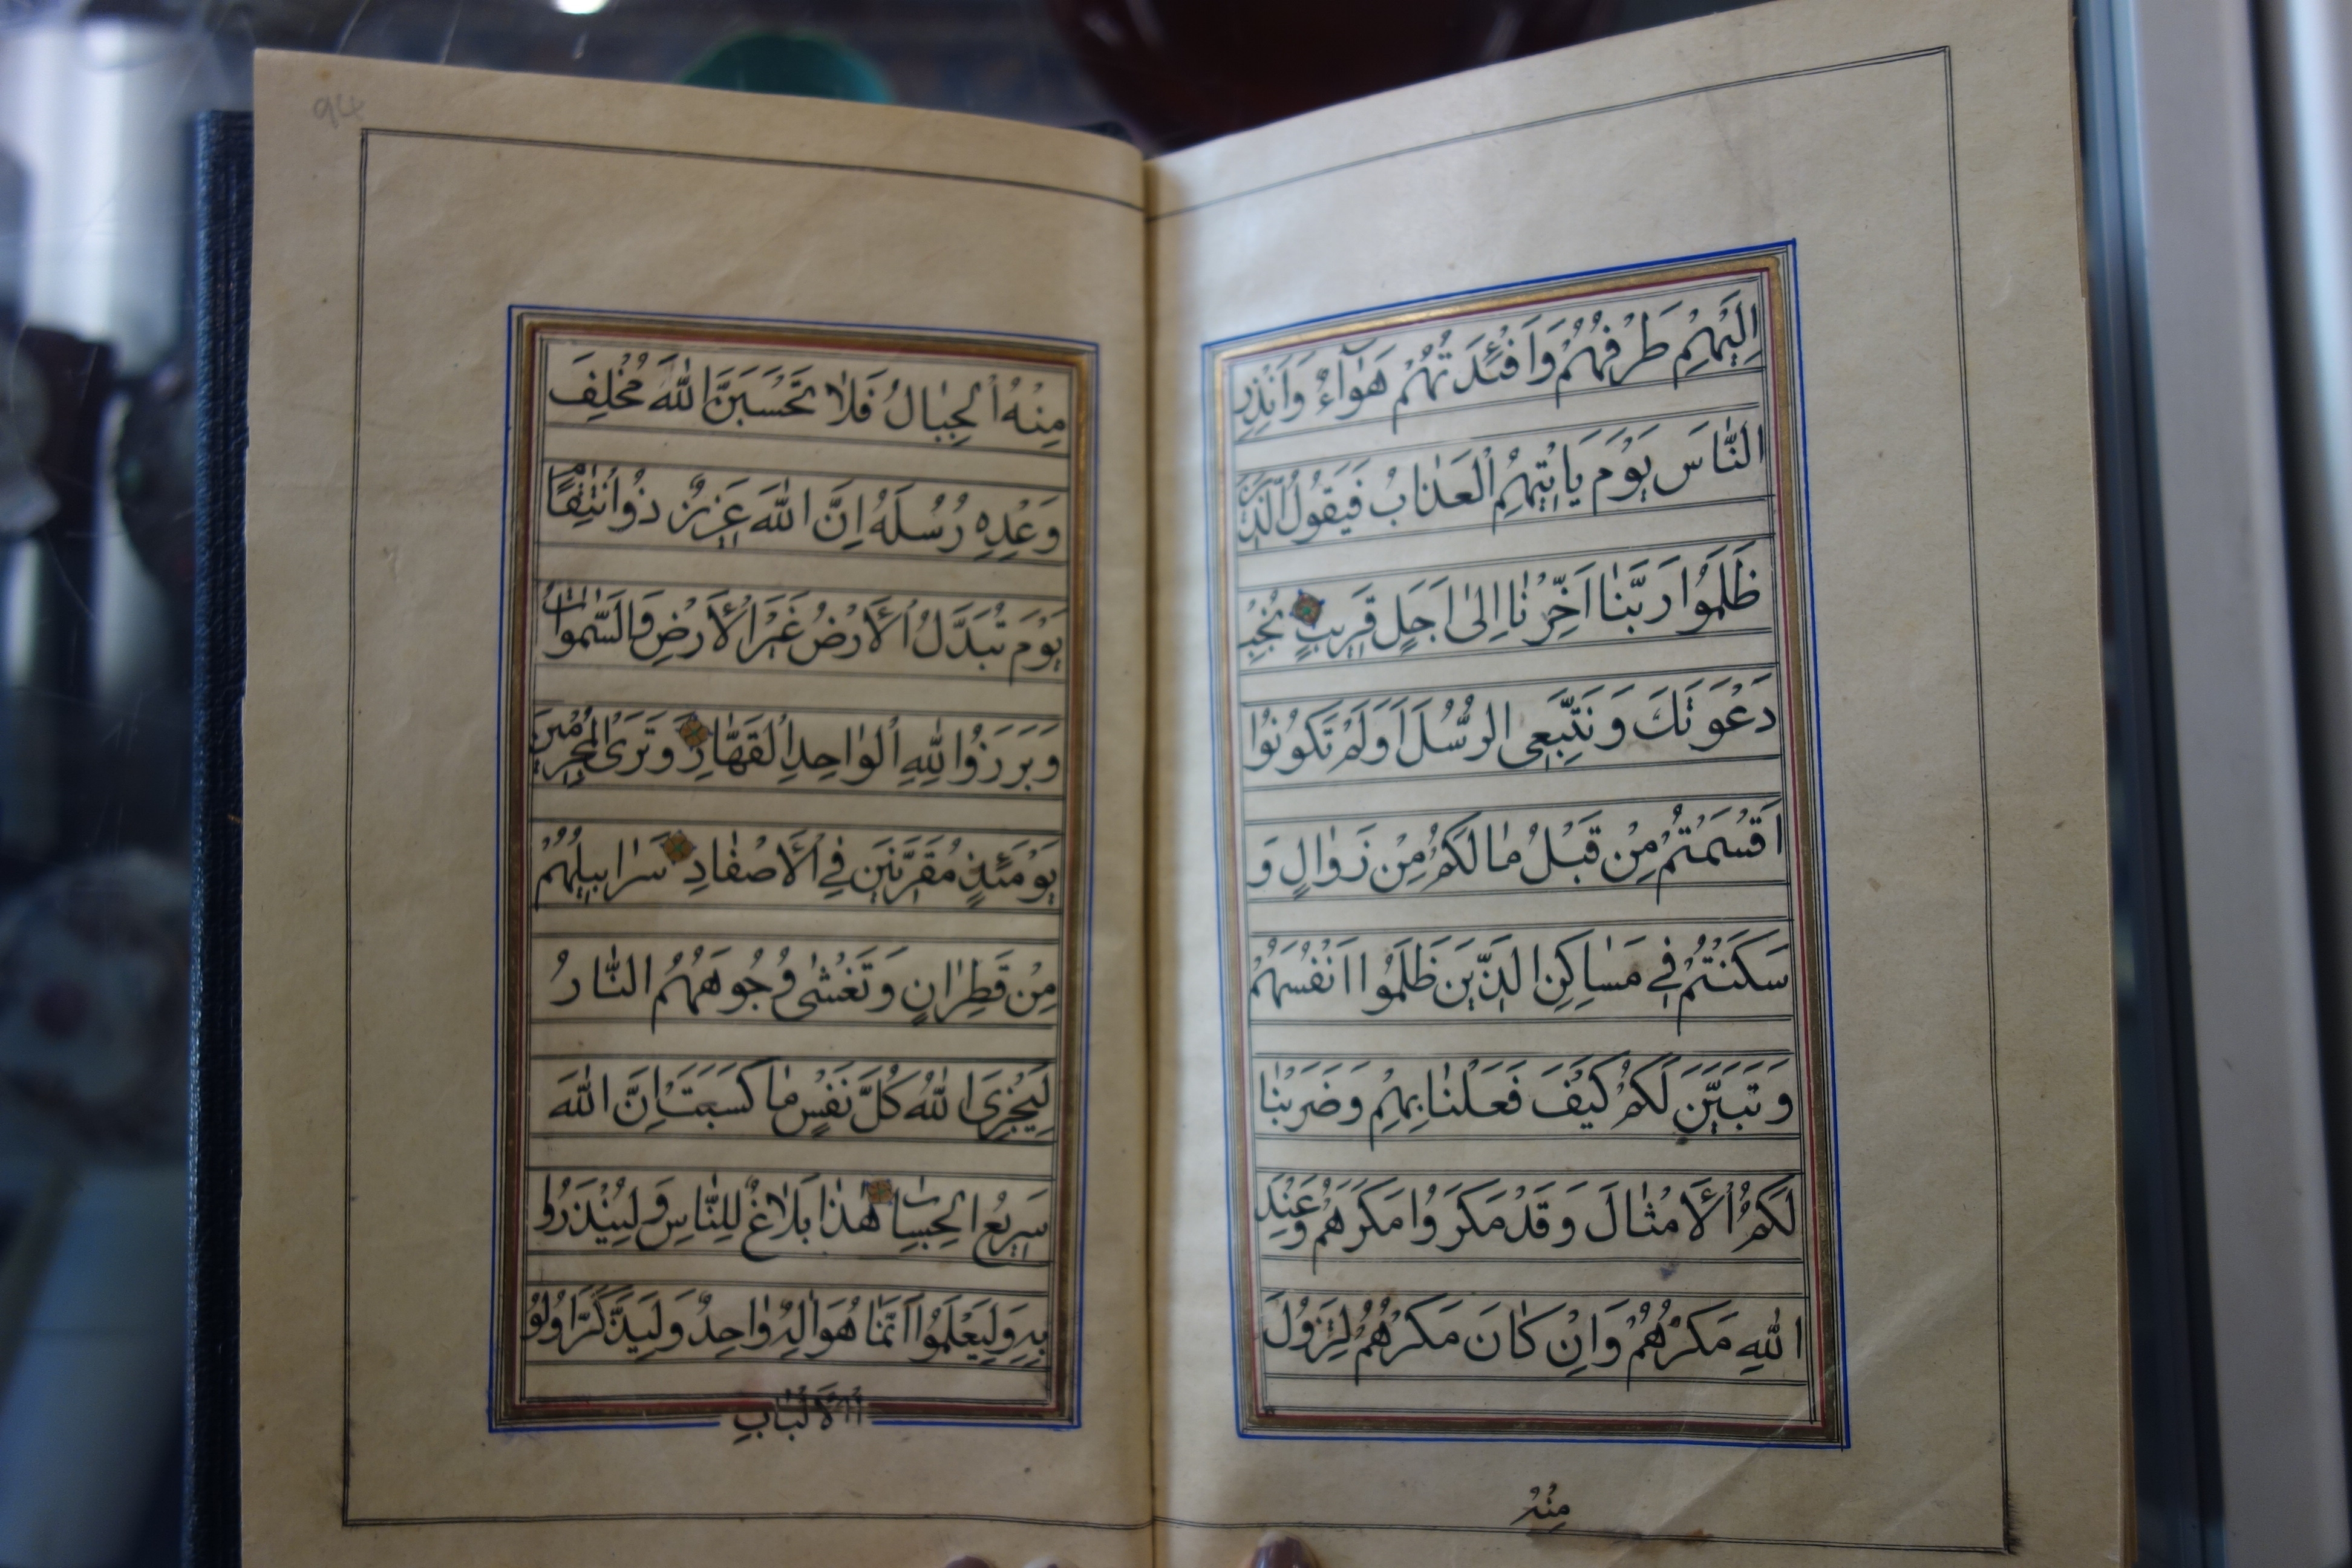 اِلَيْهِمْ طَرْفُهُمْ وَاَفْئِدَتُهُمْ هَوٰآءٌ وَاَنْذِرِ
النّٰاسَ يَوْمَ يَاْتيهِمُ الْعَذٰابُ فَيَقُولُ الَّذينَ
ظَلَمُوا رَبَّنٰا اَخِّرْنٰا اِلىٰ اَجَلٍ قَريبٍ نُجِبْ
دَعْوَتَكَ وَنَتَّبِعِ الرُّسُلَ اَوَلَمْ تَكُونُوا
اَقْسَمْتُمْ مِنْ قَبْلُ مٰا لَكُمْ مِنْ زَوٰالٍ وَ
سَكَنْتُمْ في مَسٰاكِنِ الَّذينَ ظَلَمُوا اَنْفُسَهُمْ
وَتَبَيَّنَ لَكُمْ كَيْفَ فَعَلْنٰا بِهِمْ وَضَرَبْنٰا
لَكُمُ الْاَمْثٰالَ وَقَدْ مَكَرُوا مَكْرَهُمْ وَعِنْدَ
اللّٰهِ مَكْرُهُمْ وَاِنْ كٰانَ مَكْرُهُمْ لِتَزُولَ
مِنْهُ
94
مِنْهُ الْجِبٰالُ فَلٰا تَحْسَبَنَّ اللّٰهَ مُخْلِفَ
وَعْدِهِ رُسُلَهُ اِنَّ اللّٰهَ عَزيزٌ ذُو انْتِقٰامٍ
يَوْمَ تُبَدَّلُ الْاَرْضُ غَيْرَ الْاَرْضِ وَالسَّمٰوٰاتُ
وَبَرَزُوا لِلّٰهِ الْوٰاحِدِ الْقَهّٰارِ وَتَرَى الْمُجْرِمينَ
يَوْمَئِذٍ مُقَرَّنينَ فِي الْاَصْفٰادِ سَرٰابيلُهُمْ
مِنْ قَطِرٰانٍ وَتَغْشىٰ وُجُوهَهُمُ النّٰارُ
لِيَجْزِيَ اللّٰهُ كُلَّ نَفْسٍ مٰا كَسَبَتْ اِنَّ اللّٰهَ
سَريعُ الْحِسٰابِ هٰذٰا بَلٰاغٌ لِلنّٰاسِ وَلِيُنْذَرُوا
بِهِ وَلِيَعْلَمُوا اَنَّمٰا هُوَ اِلٰهٌ وٰاحِدٌ وَلِيَذَّكَّرَ اُولُو
الْاَلْبٰابِ